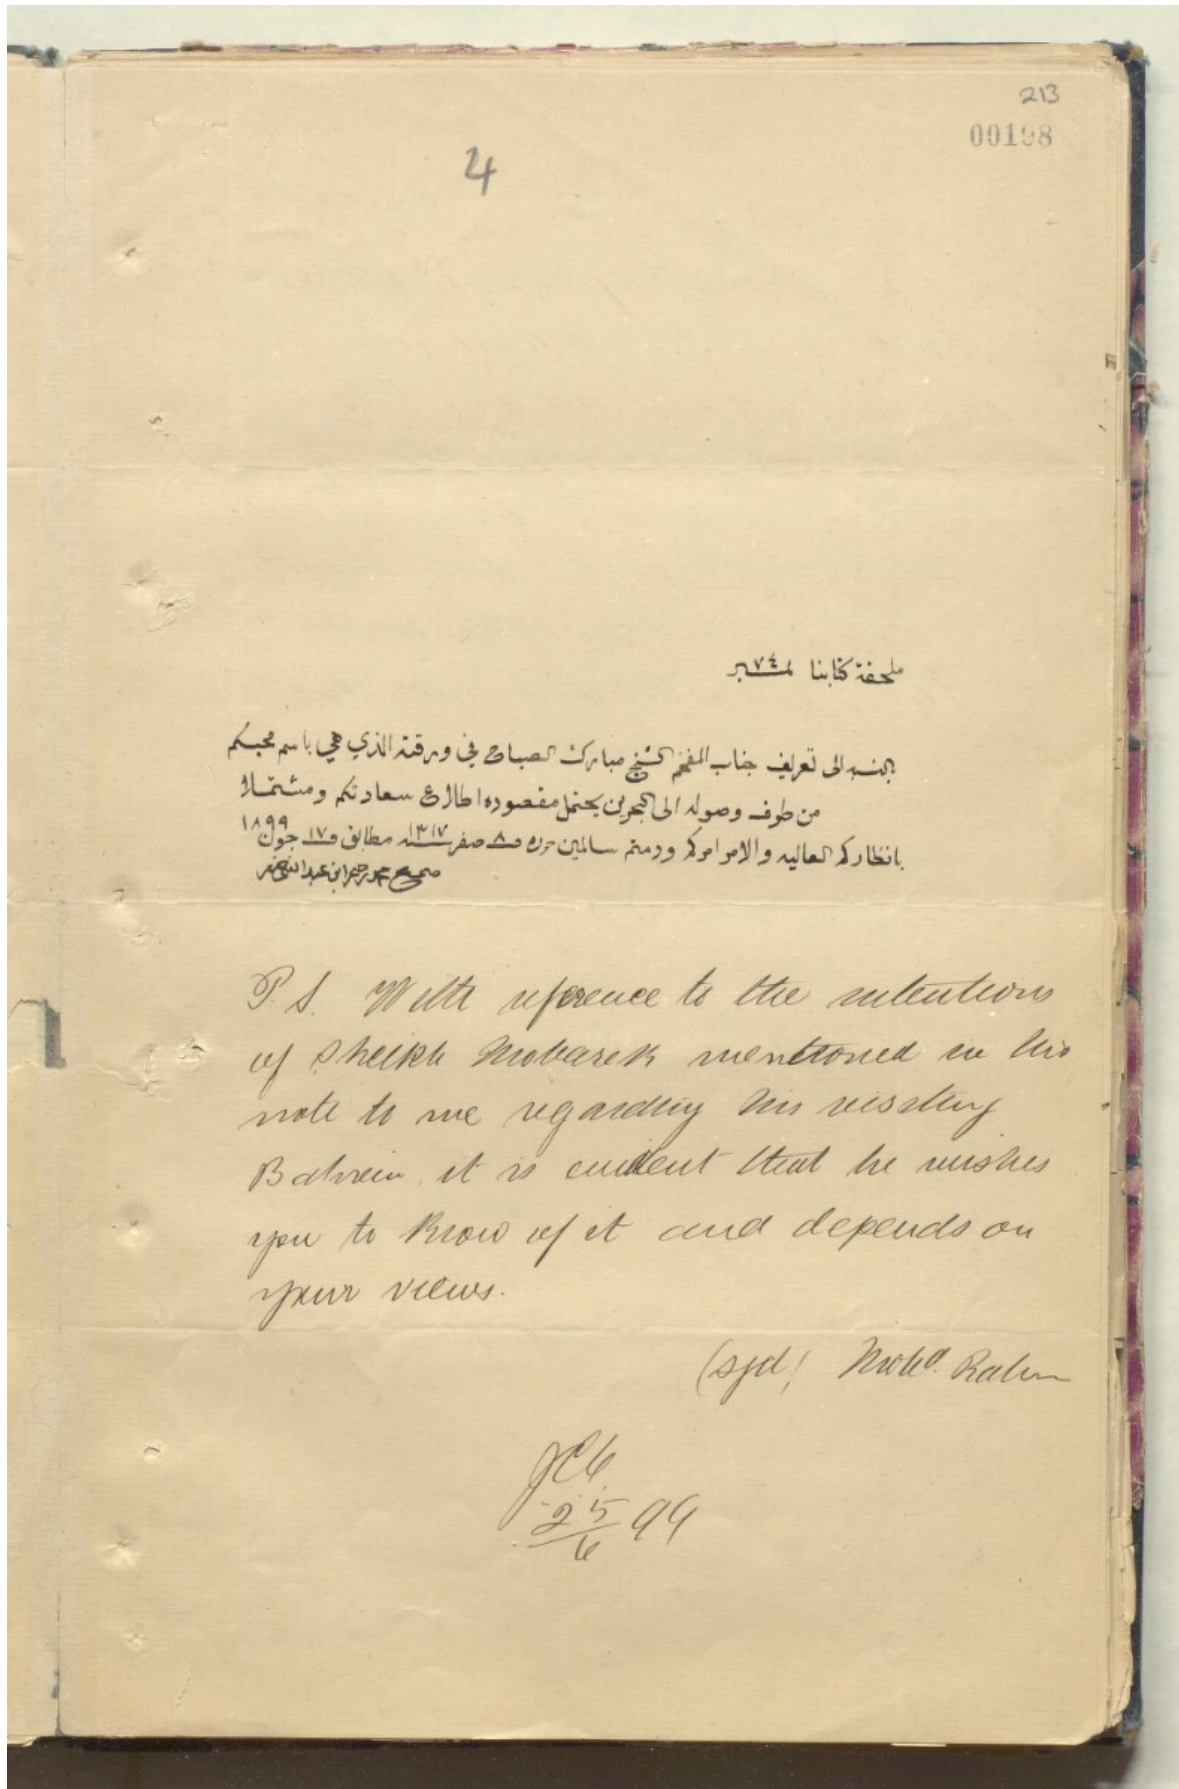 213
00198
4
ملحقة كتابنا نمبر ٧٤
بالنسبه الى تعريف جناب المفخم الشيخ مبارك الصباح في ورقته الذي هي باسم محبكم
من طرف وصوله الى البحرين يحتمل مقصوده اطلاع سعادتكم ومشتملا
بانظاركم العاليه والامر امركم ودمتم سالمين حرره في ٨ صفر سنه ١٣١٧ مطابق في ١٧ جون ١٨٩٩
صحيح محمد رحيم ابن عبد النبي صفر
P.S. With reference to the intentions
of Sheikh Mobarek mentioned in his
note to me regarding his visiting
Bahrein, it is evident that he wishes
you to know of it and depends on
your views.
(sgd) Mohd. Rahim
25/6 99